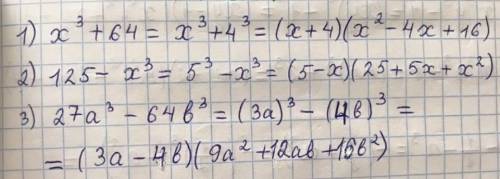 1) x³ + 64 = x³ + 4³ = (x + 4)(x² - 4x + 16)
2) 125 - x³ = 5³ - x³ = (5 - x)(25 + 5x + x²)
3) 27a³ - 64b³ = (3a)³ - (4b)³ =
= (3a - 4b)(9a² + 12ab + 16b²)